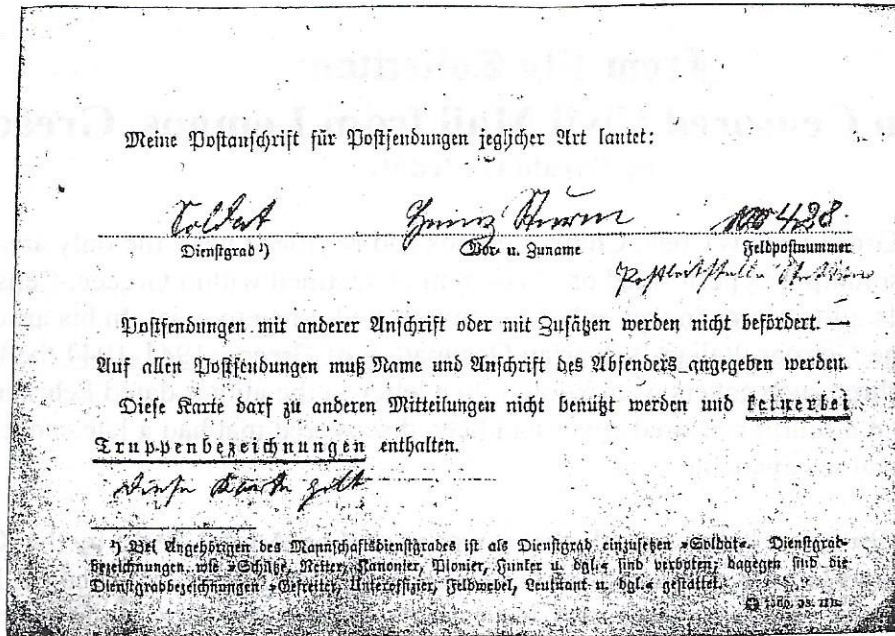 Meine Postanschrift für Postsendungen jeglicher Art lautet:
Soldat Heinz Sturm 428
Dienstgrad ¹) Vor- u. Zuname Feldpostnummer
Postleitstelle
Postsendungen mit anderer Anschrift oder mit Zusätzen werden nicht befördert. —
Auf allen Postsendungen muß Name und Anschrift des Absenders angegeben werden.
Diese Karte darf zu anderen Mitteilungen nicht benutzt werden und keinerlei
Truppenbezeichnungen enthalten.
Diese Karte gilt
¹) Bei Angehörigen des Mannschaftsdienstgrades ist als Dienstgrad einzusetzen »Soldat«. Dienstgrad-
bezeichnungen wie »Schütze, Reiter, Kanonier, Pionier, Funker u. dgl.« sind verboten; dagegen sind die
Dienstgradbezeichnungen »Gefreiter, Unteroffizier, Feldwebel, Leutnant u. dgl.« gestattet.